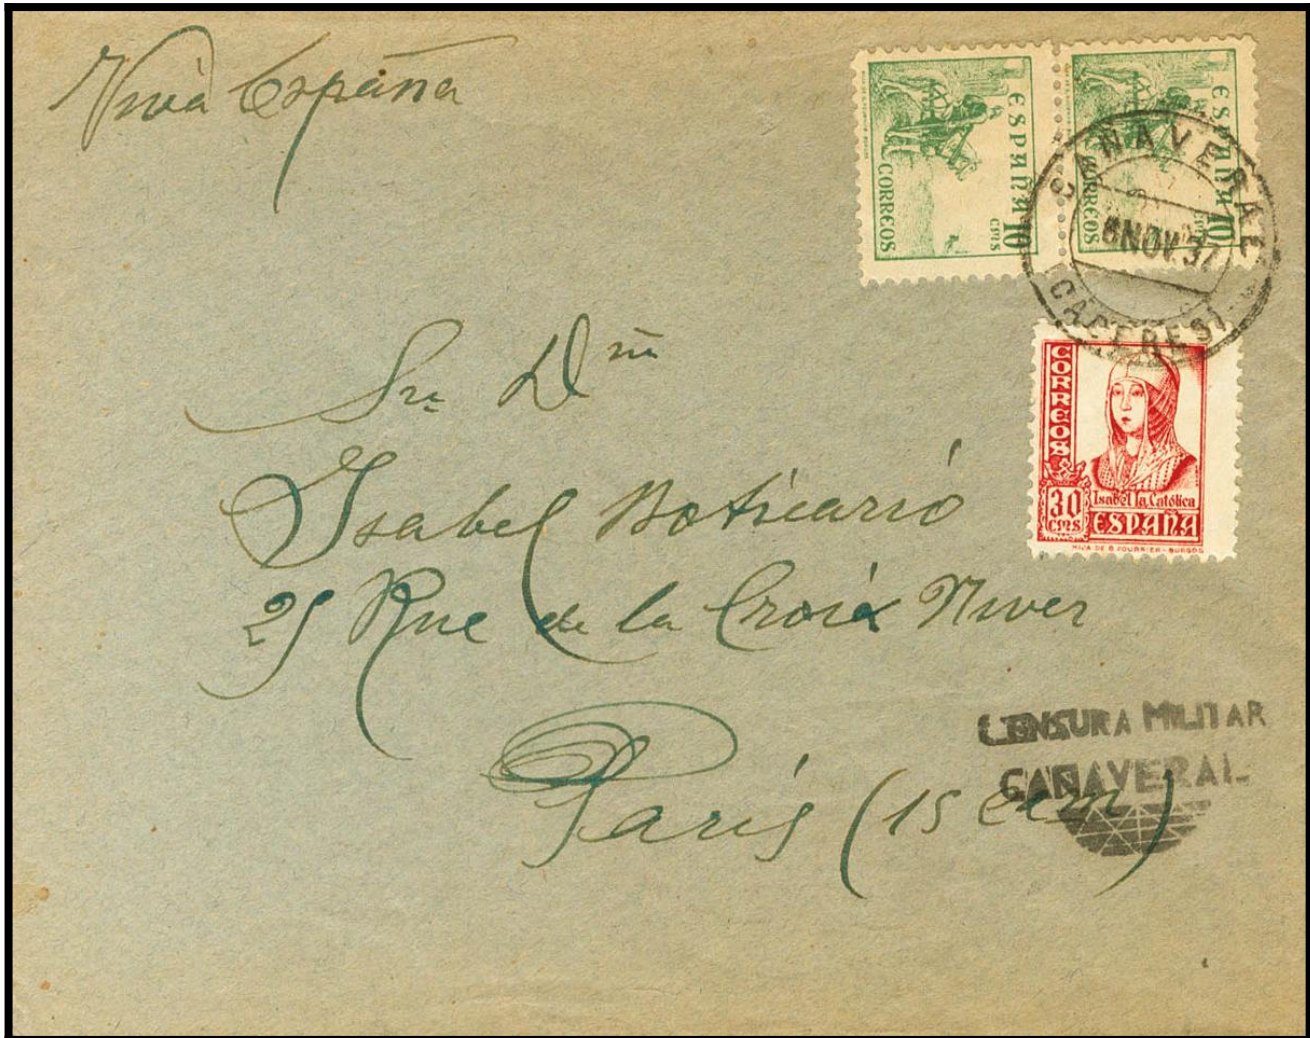 Viva España
ESPAÑA
10
CTMS
CORREOS
ESPAÑA
10
CORREOS
CAÑAVERAL
6 NOV. 37
(CACERES)
CORREOS
Isabel la Católica
30
CTMS
ESPAÑA
HIJA DE B. FOURNIER - BURGOS
Sra Dña
Isabel Boticario
25 Rue de la Croix Niver
Paris (15 eem)
CENSURA MILITAR
CAÑAVERAL